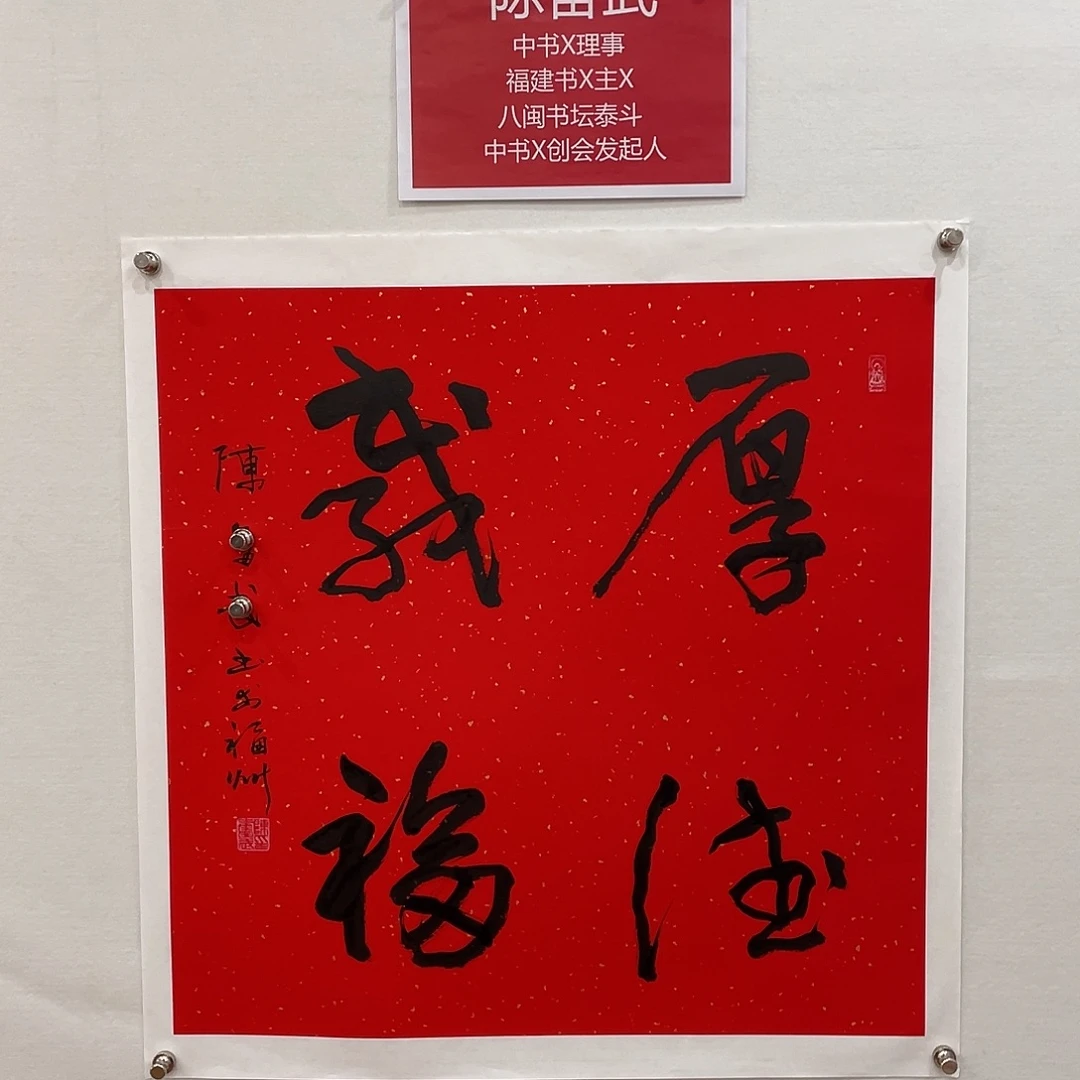 陈奋武
中书X理事
福建书X主X
八闽书坛泰斗
中书X创会发起人
厚德
載福
陳奮武书於福州